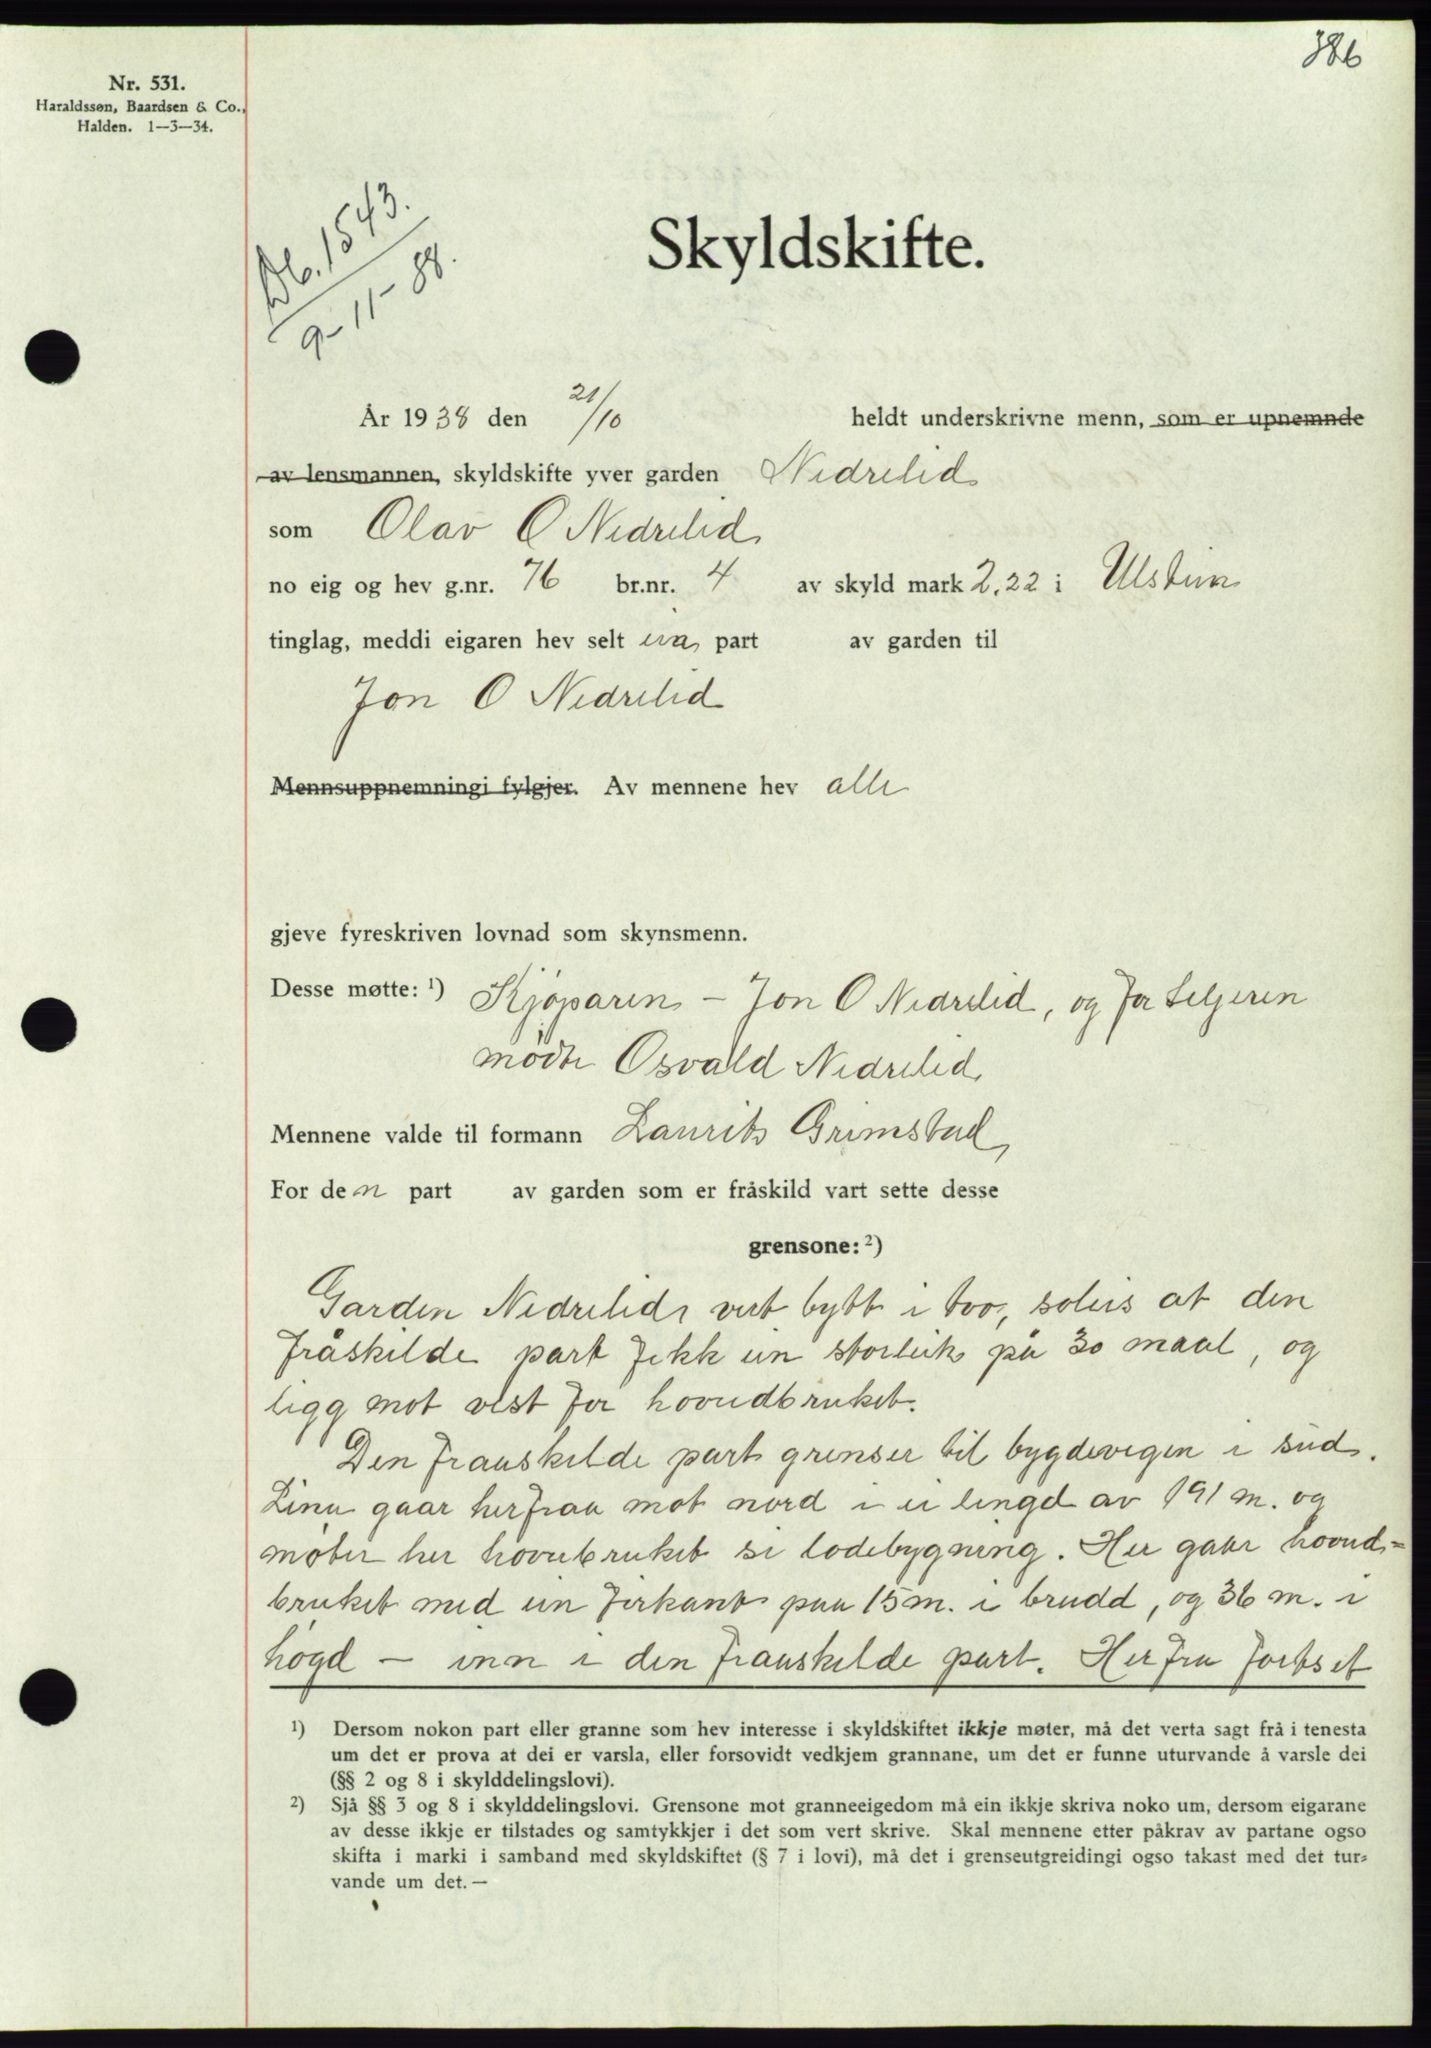 386
Nr. 531.
Haraldssøn, Baardsen & Co.,
Halden. 1—3—34.
Db. 1543.
9-11-38.
Skyldskifte.
År 1938 den 21/10 heldt underskrivne menn, som er upnemnde
av lensmannen, skyldskifte yver garden Nedrelid
som Olav O Nedrelid
no eig og hev g.nr. 76 br.nr. 4 av skyld mark 2,22 i Ulstein
tinglag, meddi eigaren hev selt ein part av garden til
Jon O Nedrelid
Mennsuppnemningi fylgjer. Av mennene hev alle
gjeve fyreskriven lovnad som skynsmenn.
Desse møtte: ¹) Kjøparen – Jon O Nedrelid, og for Seljeren
mødte Osvald Nedrelid
Mennene valde til formann Laurits Grimstad
For den part av garden som er fråskild vart sette desse
grensone: ²)
Garden Nedrelid vert bytt i too, soleis at den
fråskilde part fekk ein storleik på 30 maal, og
ligg mot vest for hovudbruket.
Den fraaskilde part grenser til bygdevegen i süd.
Lina gaar herfraa mot nord i ei lengd av 191 m. og
møter her hovubruket si lødebygning. Her gaar hovud=
bruket med ein firkant paa 15 m. i bredd, og 36 m. i
høgd – inn i den fraaskilde part. Herfra fortset
¹) Dersom nokon part eller granne som hev interesse i skyldskiftet ikkje møter, må det verta sagt frå i tenesta
um det er prova at dei er varsla, eller forsovidt vedkjem grannane, um det er funne uturvande å varsle dei
(§§ 2 og 8 i skylddelingslovi).
²) Sjå §§ 3 og 8 i skylddelingslovi. Grensone mot granneeigedom må ein ikkje skriva noko um, dersom eigarane
av desse ikkje er tilstades og samtykkjer i det som vert skrive. Skal mennene etter påkrav av partane ogso
skifta i marki i samband med skyldskiftet (§ 7 i lovi), må det i grenseutgreidingi ogso takast med det tur-
vande um det. —